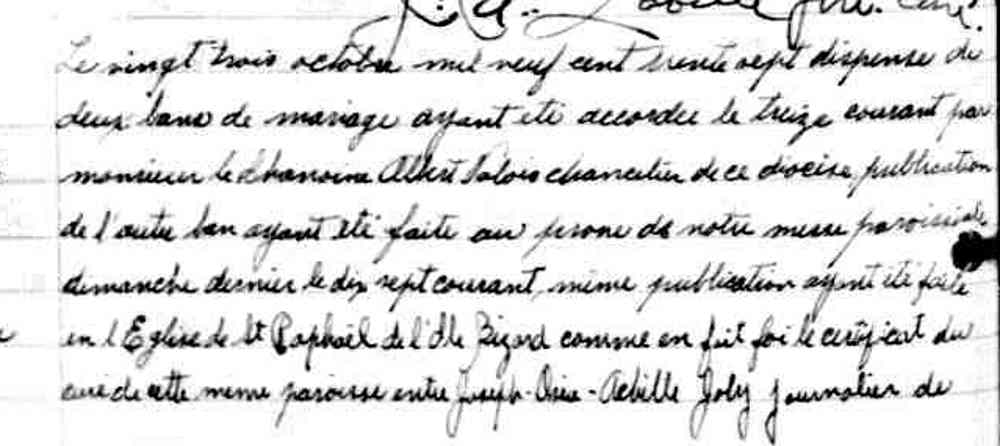 Le vingt trois octobre mil neuf cent trente sept dispense de
deux bans de mariage ayant été accordée le treize courant par
monsieur le Chanoine Albert Valois chancelier de ce diocèse, publication
de l'autre ban ayant été faite au prone de notre messe paroissiale
dimanche dernier le dix sept courant, même publication ayant été faite
en l'Eglise de St Raphaël de l'Ile Bizard comme en fait foi le certificat du
curé de cette meme paroisse entre Joseph-Osias-Achille Joly journalier de